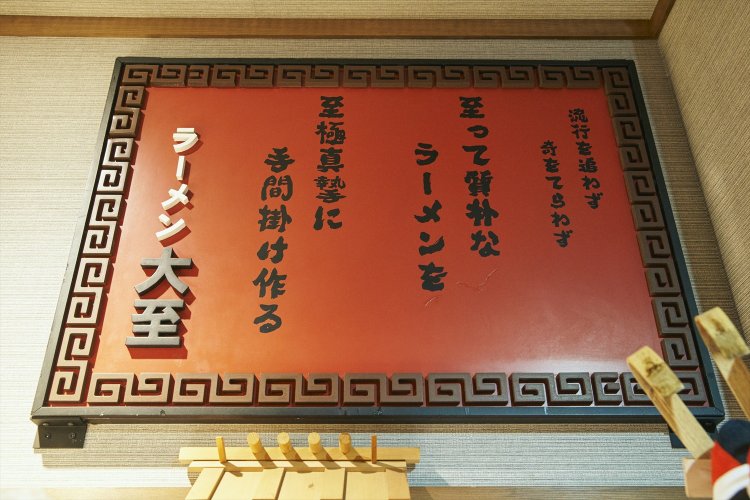 流行を追わず
奇をてらわず
至って質朴な
ラーメンを
至極真摯に
手間掛け作る
ラーメン大至